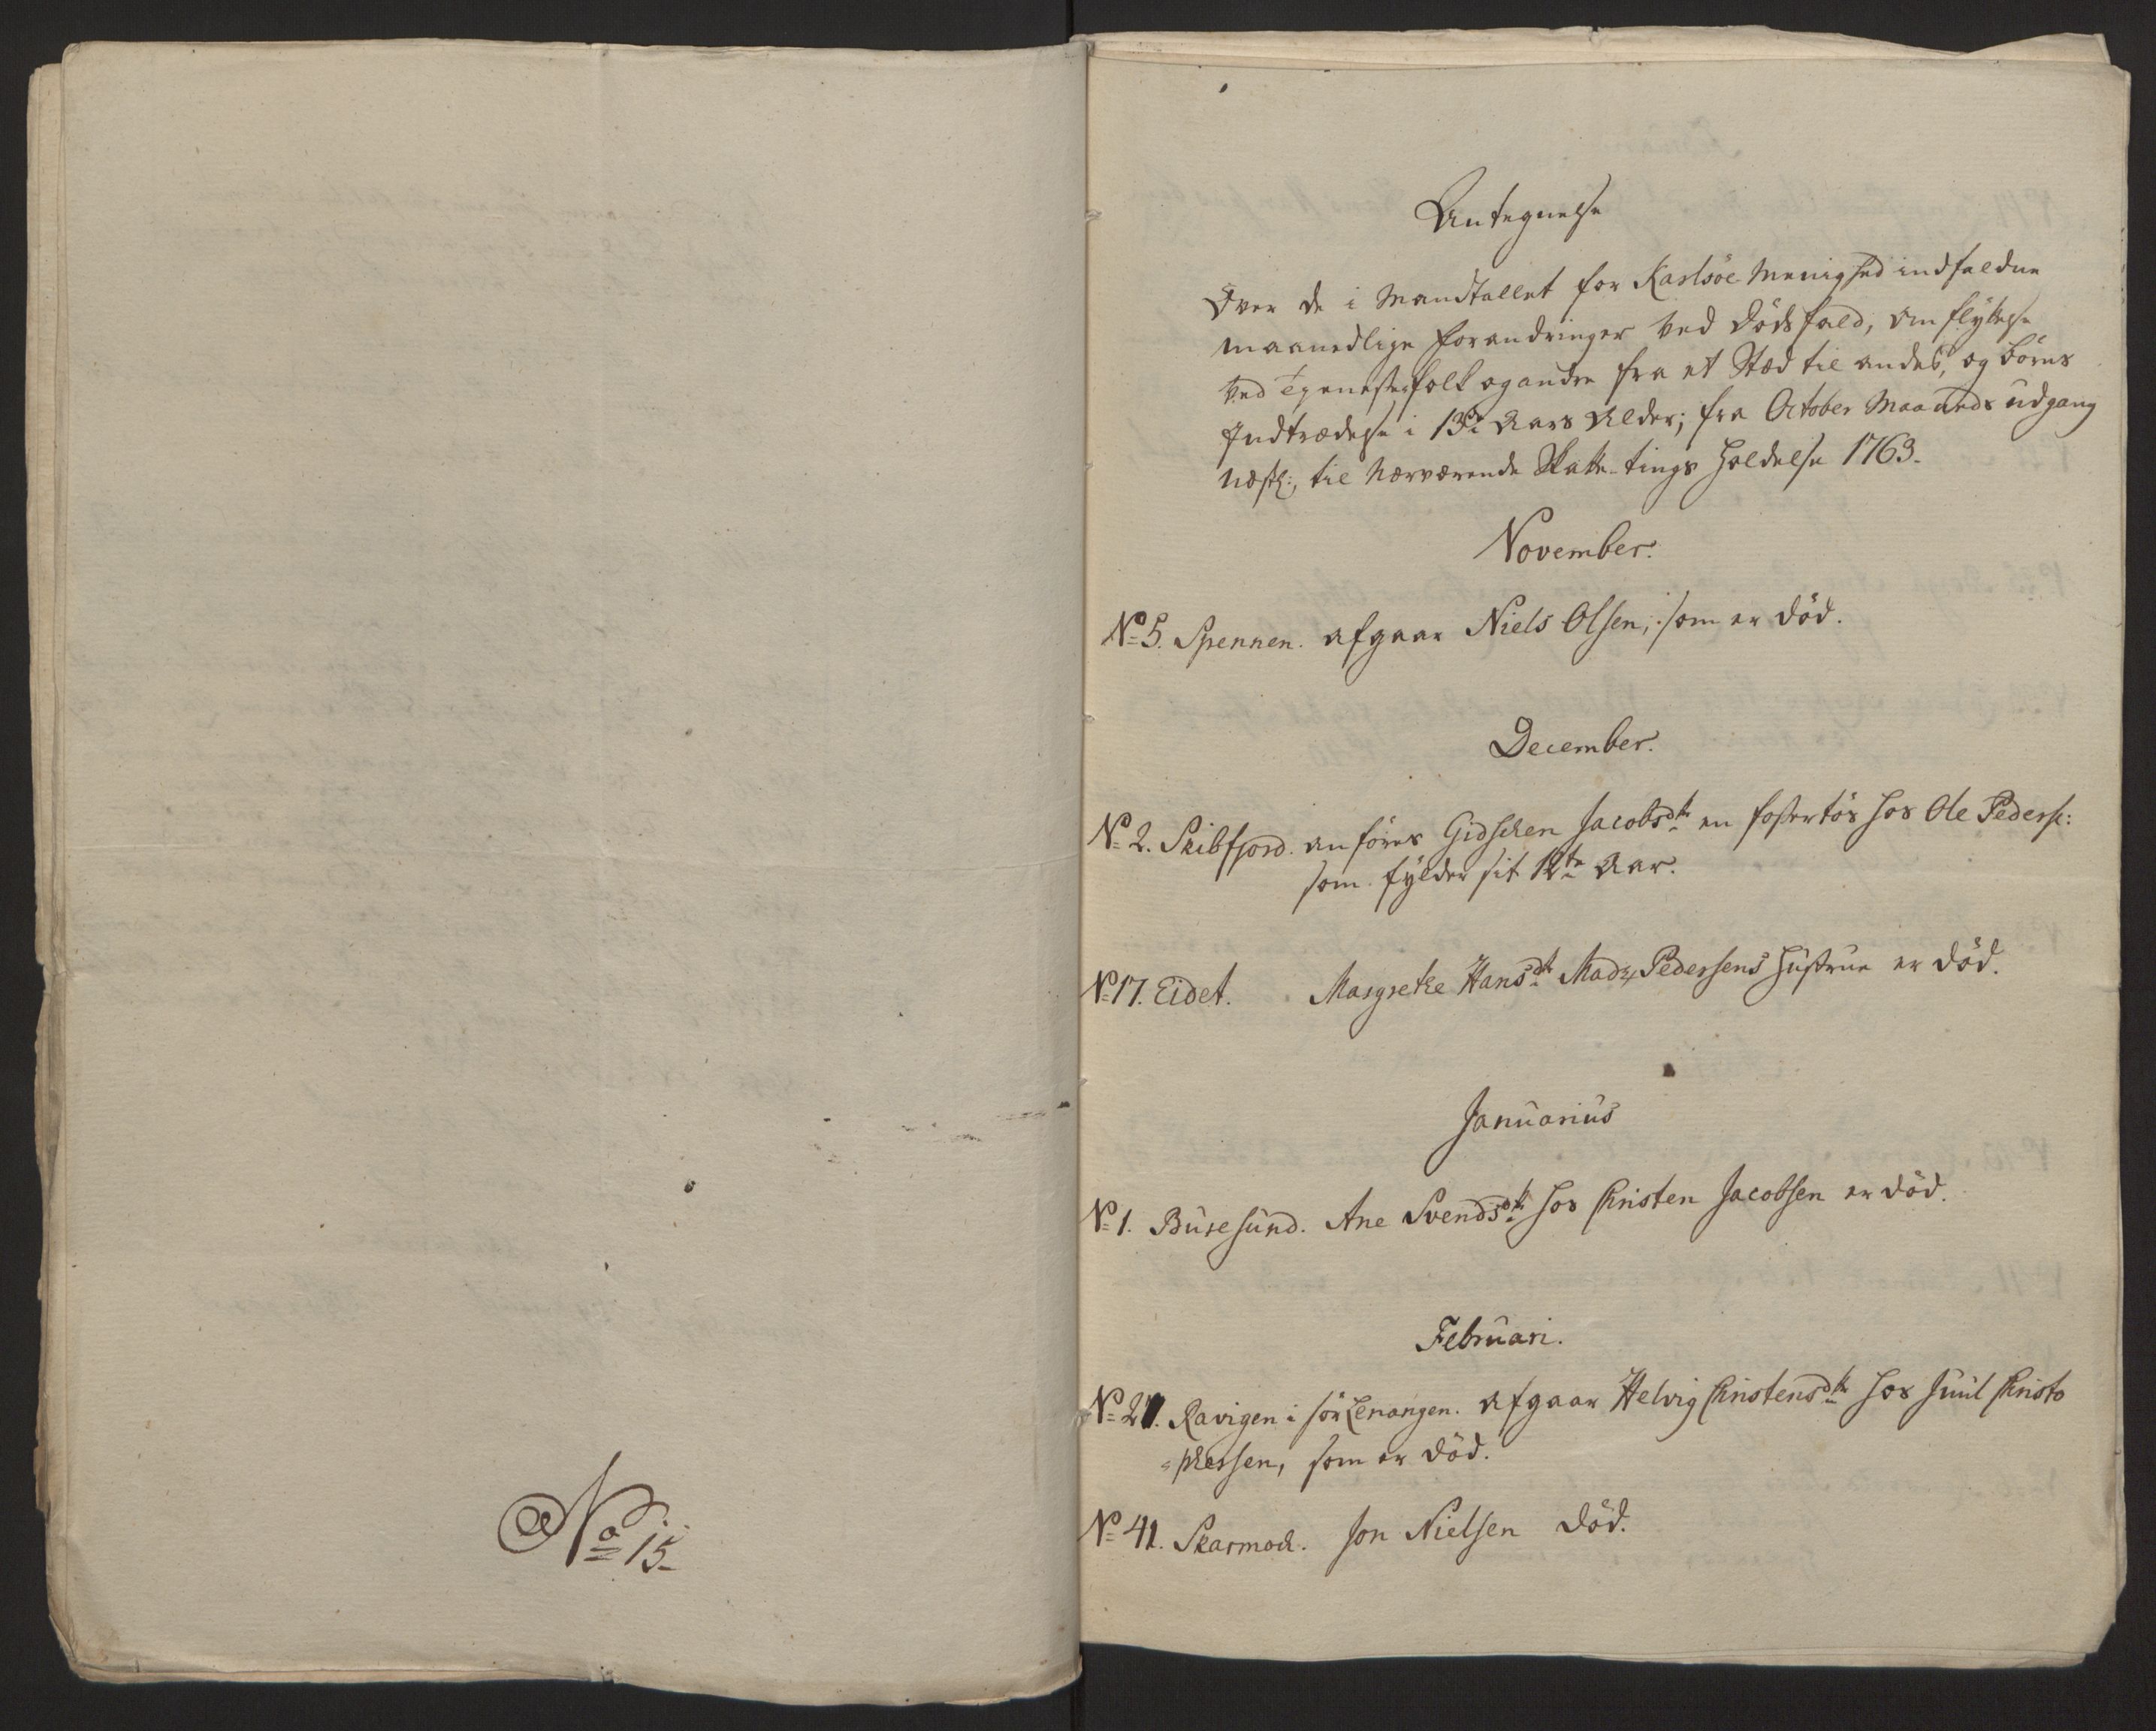 No 15.
Antegnelse
Over de i Mandtallet for Karlsöe Menighed indfaldne
maanedlige forandringer ved Dödsfald, Omflÿtelse
ved Tienestefolk og andre fra et Stæd til andet, og Börns
Indtrædelse i 13de Aars Alder; fra October Maaneds udgang
næstl:, til nærværende Skatte-tings Holdelse 1763.
November.
No 5. Spennen. afgaar Niels Olsen, som er död.
December.
No 2. Skibfjord. anföres Gidschen Jacobsdtr en fostertös hos Ole Peders:
som fÿlder sit 12te Aar.
No 17. Eidet. Margrethe Hansdtr Mads Pedersens Hustrue er död.
Januarius
No 1. Buresund. Ane Svendsdtr hos Christen Jacobsen er död.
Februari.
No 27. Ravigen i Sör Lenangen. afgaar Helvig Christensdtr hos Juul Christo
phersen, som er död.
No 41. Skarmoch. Jon Nielsen död.